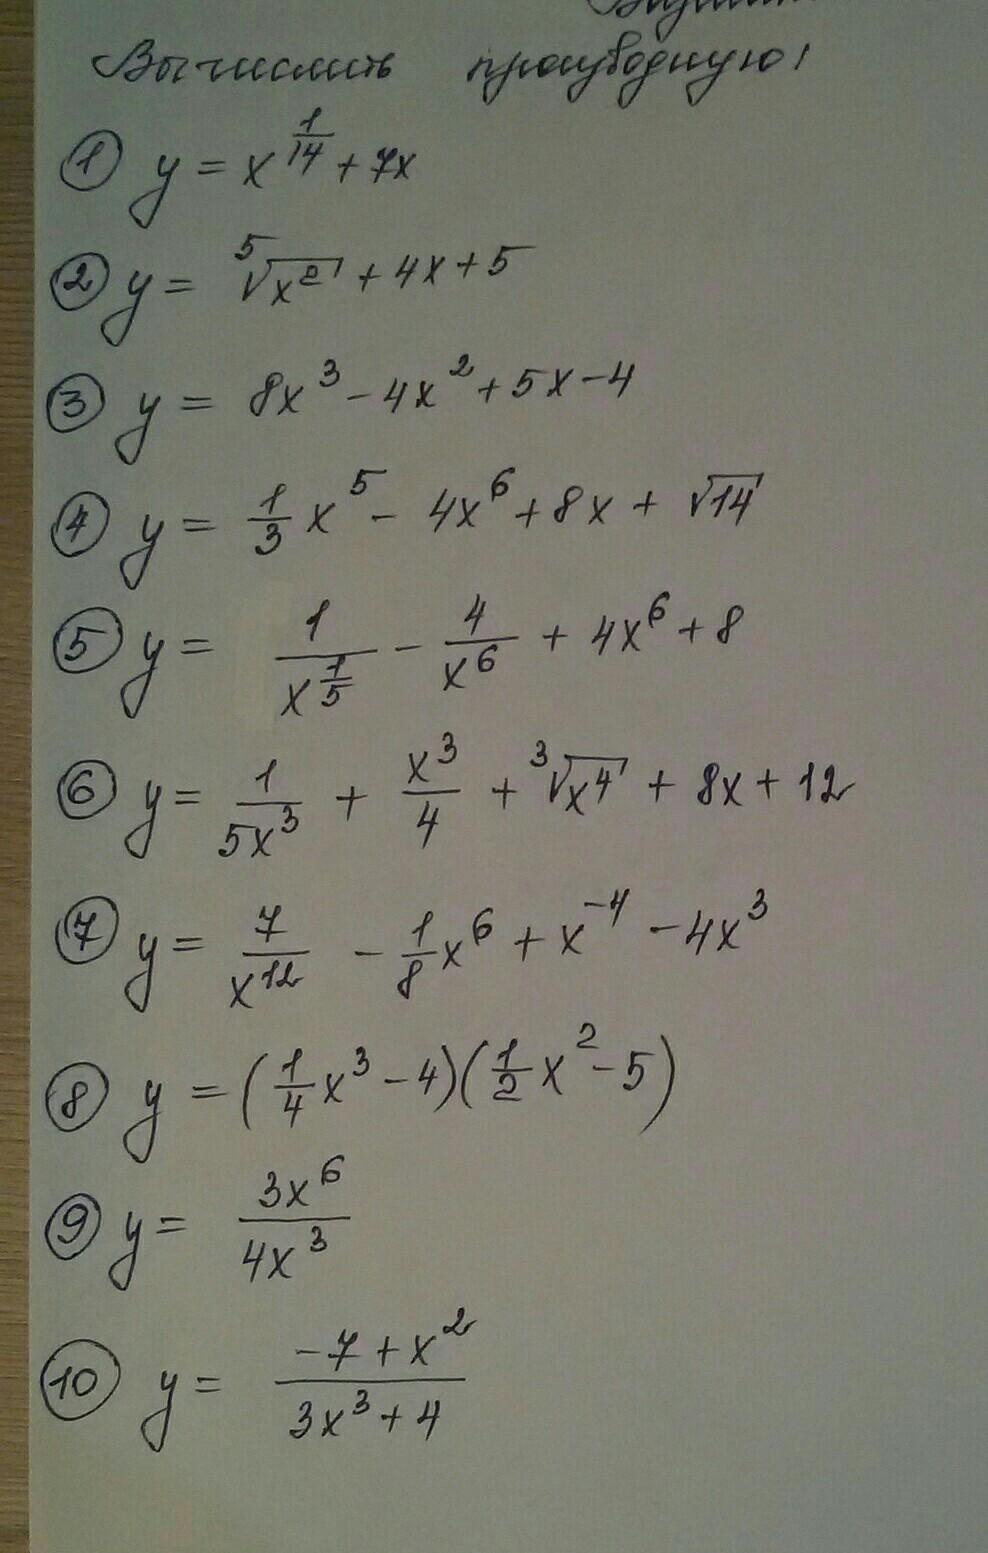 Вычислить производную!
① y = x^{\frac{1}{14}} + 7x
② y = \sqrt[5]{x^2} + 4x + 5
③ y = 8x^3 - 4x^2 + 5x - 4
④ y = \frac{1}{3}x^5 - 4x^6 + 8x + \sqrt{14}
⑤ y = \frac{1}{x^{\frac{1}{5}}} - \frac{4}{x^6} + 4x^6 + 8
⑥ y = \frac{1}{5x^3} + \frac{x^3}{4} + \sqrt[3]{x^4} + 8x + 12
⑦ y = \frac{7}{x^{12}} - \frac{1}{8}x^6 + x^{-4} - 4x^3
⑧ y = (\frac{1}{4}x^3 - 4)(\frac{1}{2}x^2 - 5)
⑨ y = \frac{3x^6}{4x^3}
⑩ y = \frac{-7 + x^2}{3x^3 + 4}